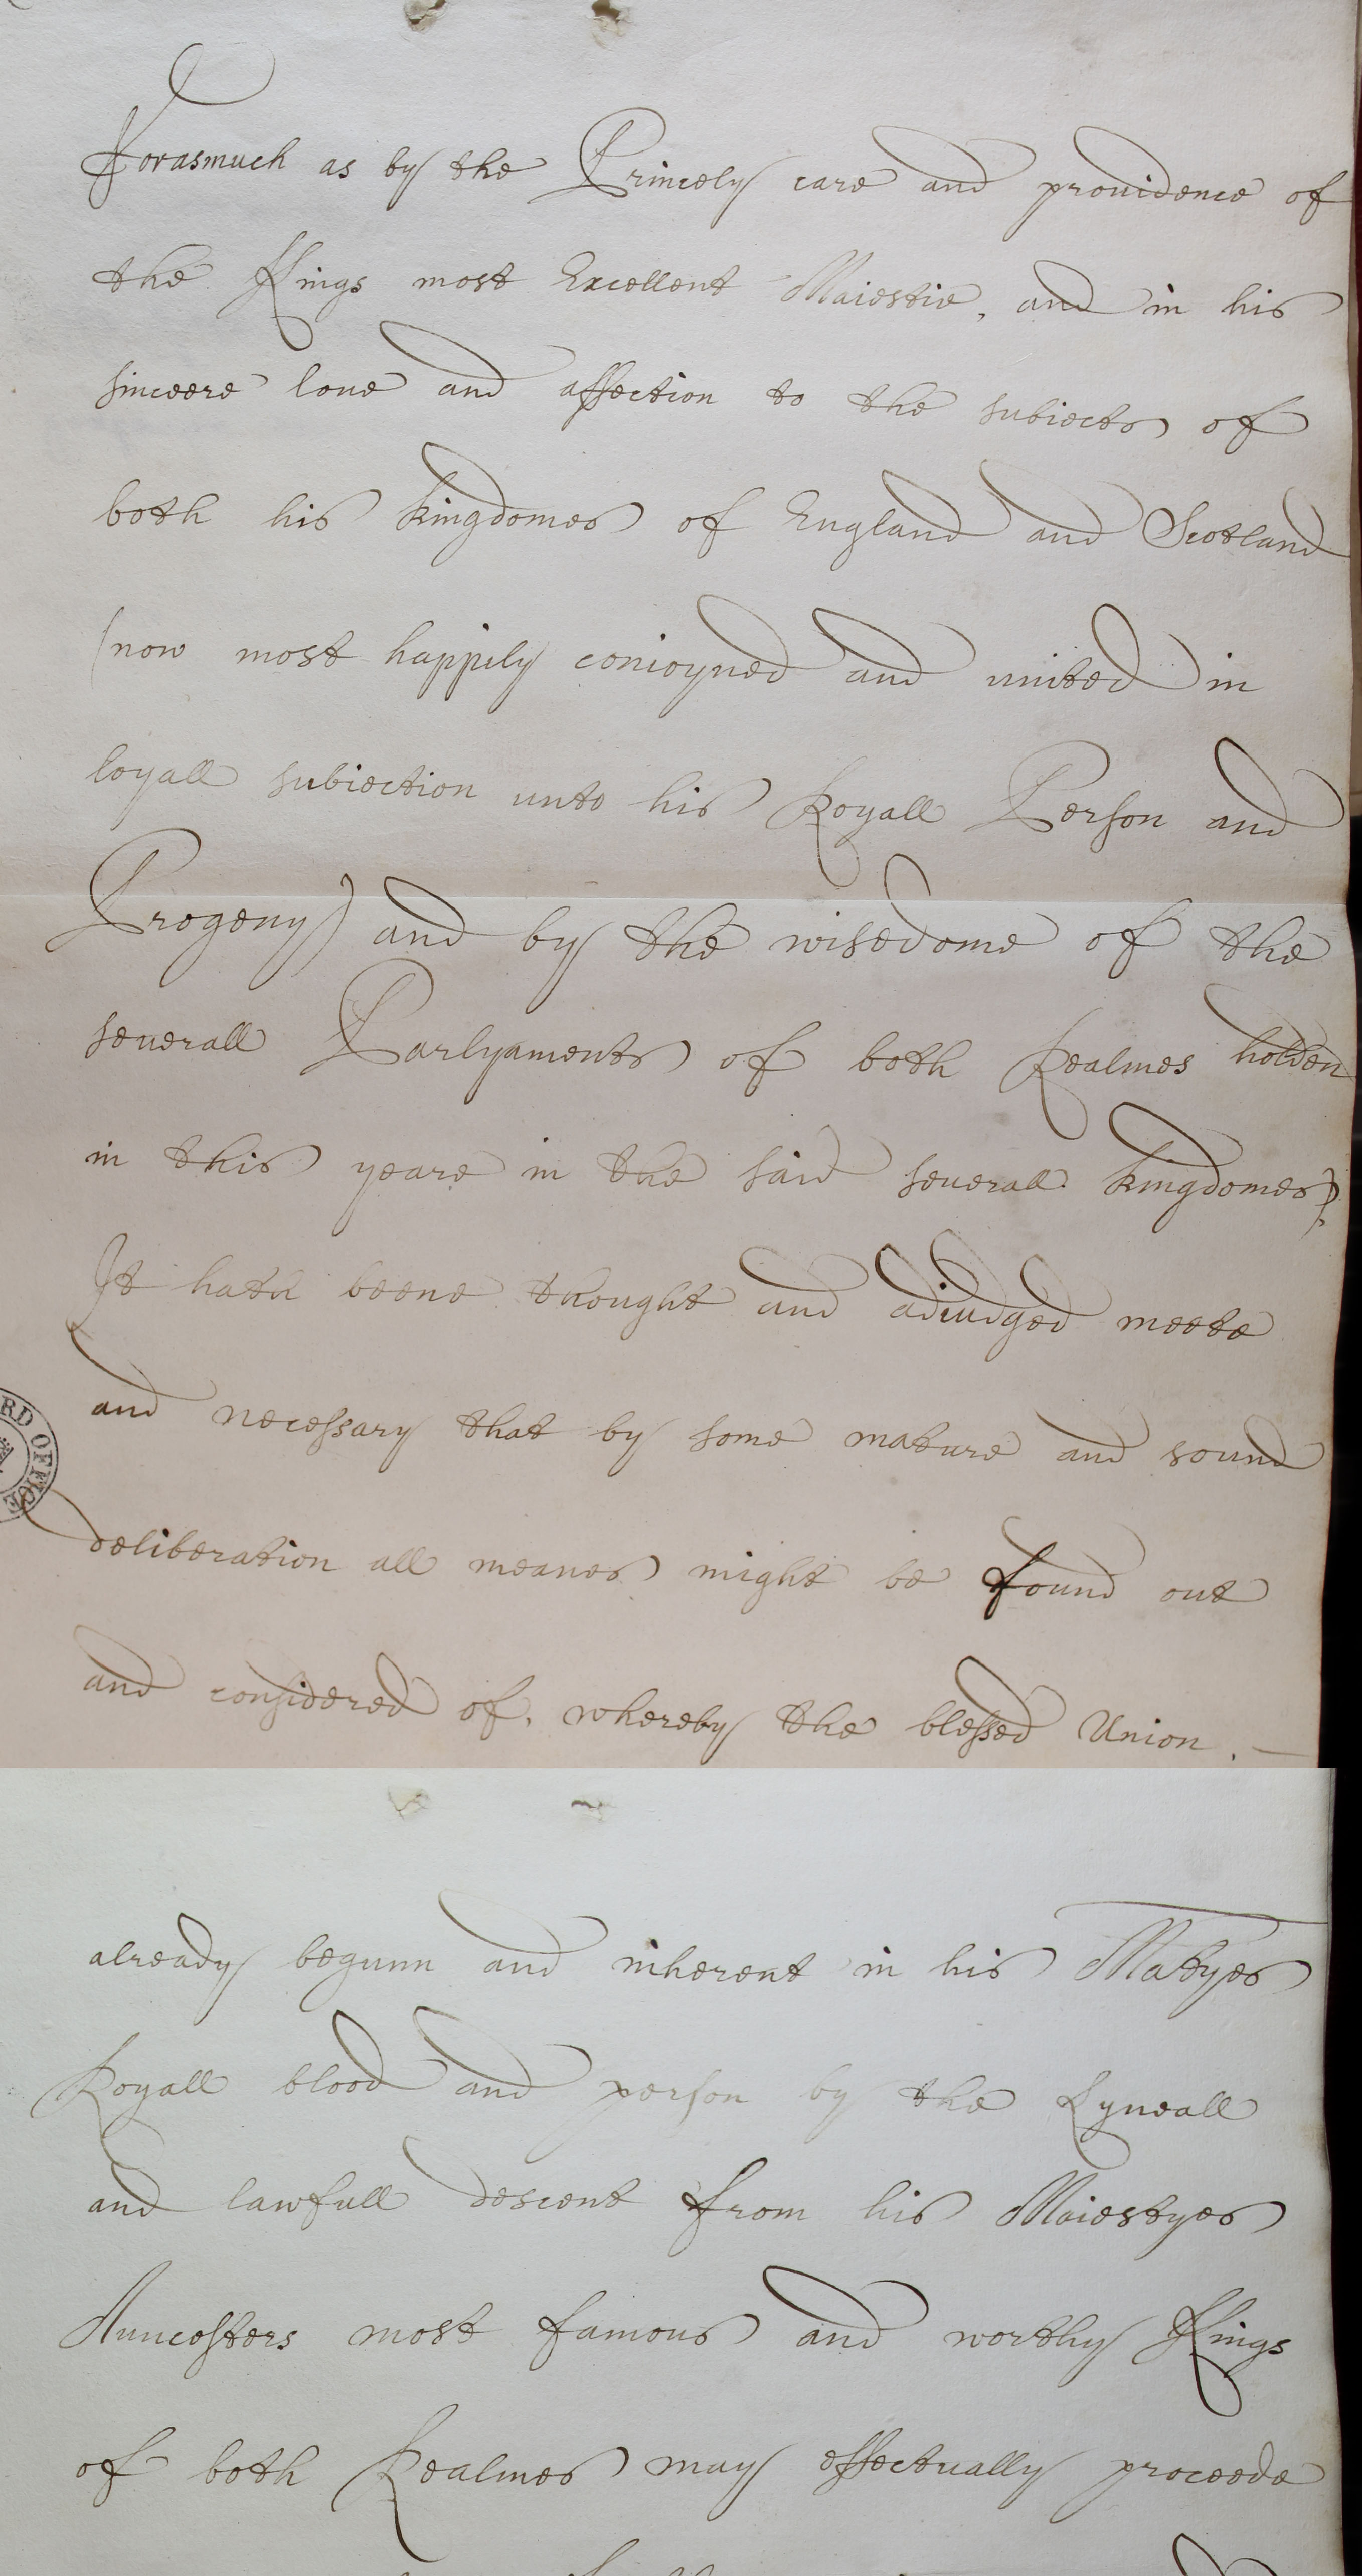 Forasmuch as by the Princely care and prouidence of
the Kings most Excellent Maiestie, and in his
sinceere loue and affection to the subiects of
both his kingdomes of England and Scotland
(now most happily conioyned and united in
loyall subiection unto his Royall Person and
Progeny) and by the wisedome of the
seuerall Parlyaments of both Realmes holden
in this yeare in the said seuerall kingdomes,
It hath beene thought and adiudged meete
and necessary that by some mature and sound
RD OFFICE
deliberation all meanes might be found out
and considered of, whereby the blessed Union. —
already begunn and inherent in his Matyes
Royall blood and person by the Lyneall
and lawfull descent from his Maiestyes
Auncesters most famous and worthy Kings
of both Realmes may effectually proceede